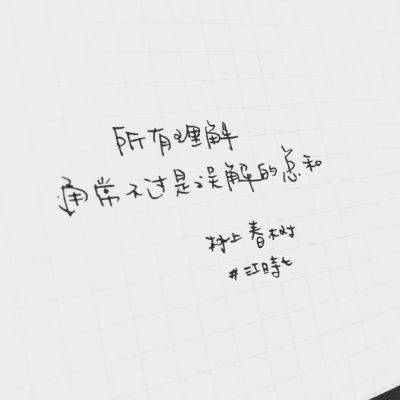 所有理解
通常不过是误解的总和
村上春树
#江時